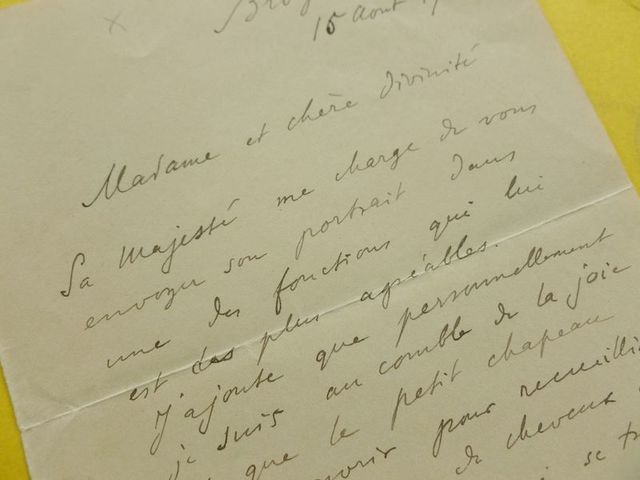 15 Aout
Madame et chère divinité
Sa Majesté me charge de vous
envoyer son portrait dans
une des fonctions qui lui
est des plus agréables.
J'ajoute que personnellement
je suis au comble de la joie
que le petit chapeau
pour recueillir
de cheveux
se